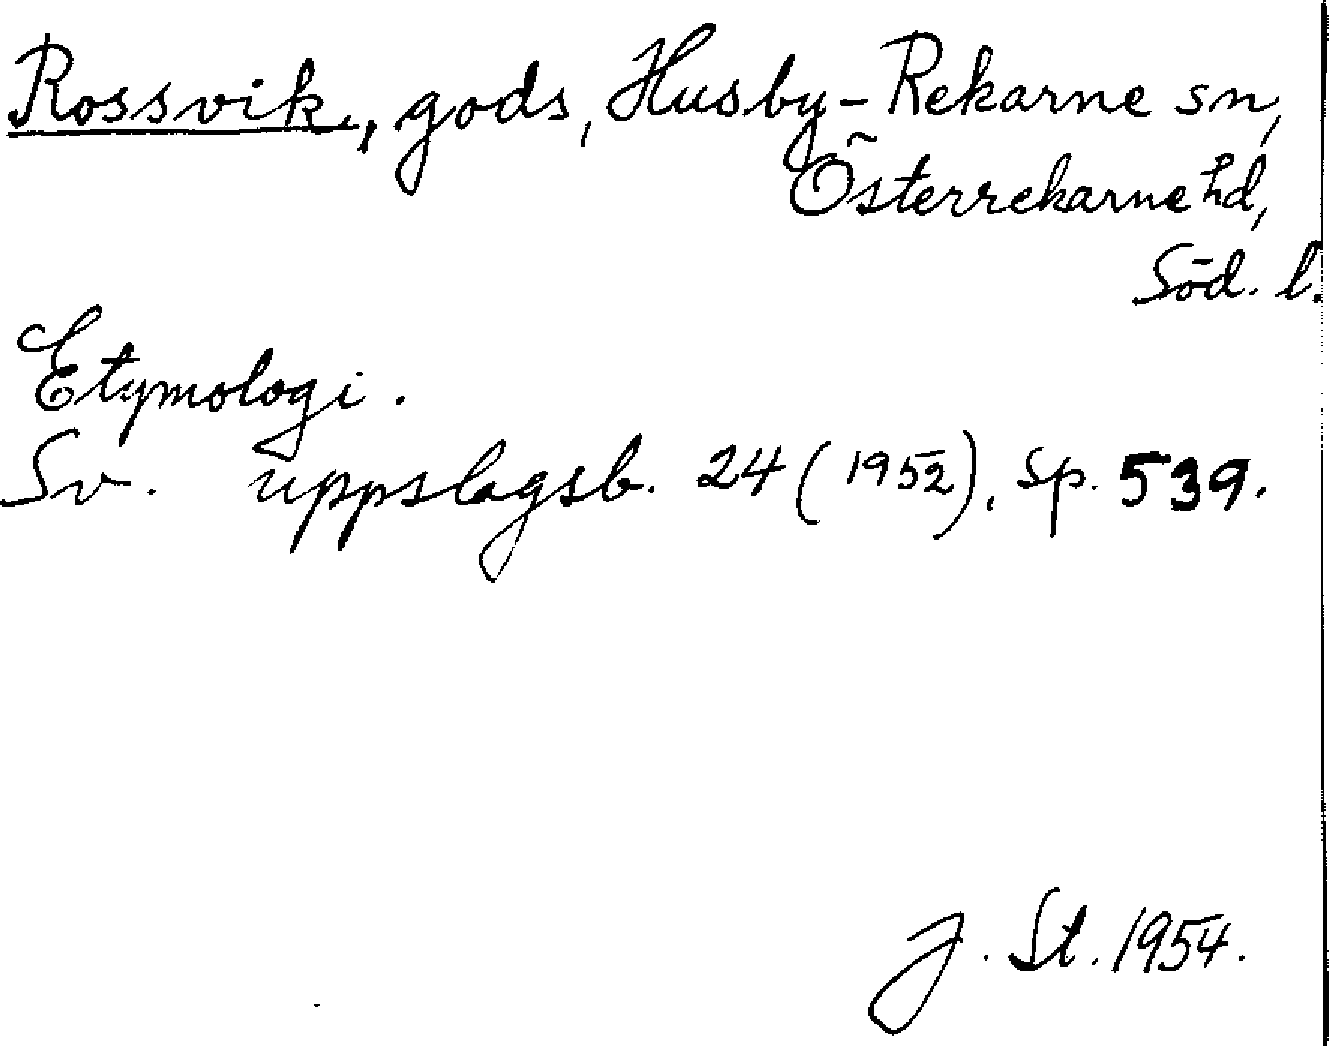 Rossvik, gods, Husby-Rekarne sn,
Österrekarne hd,
Söd. l.
Etymologi.
Sv. uppslagsb. 24 (1952), sp. 539.
J. St. 1954.